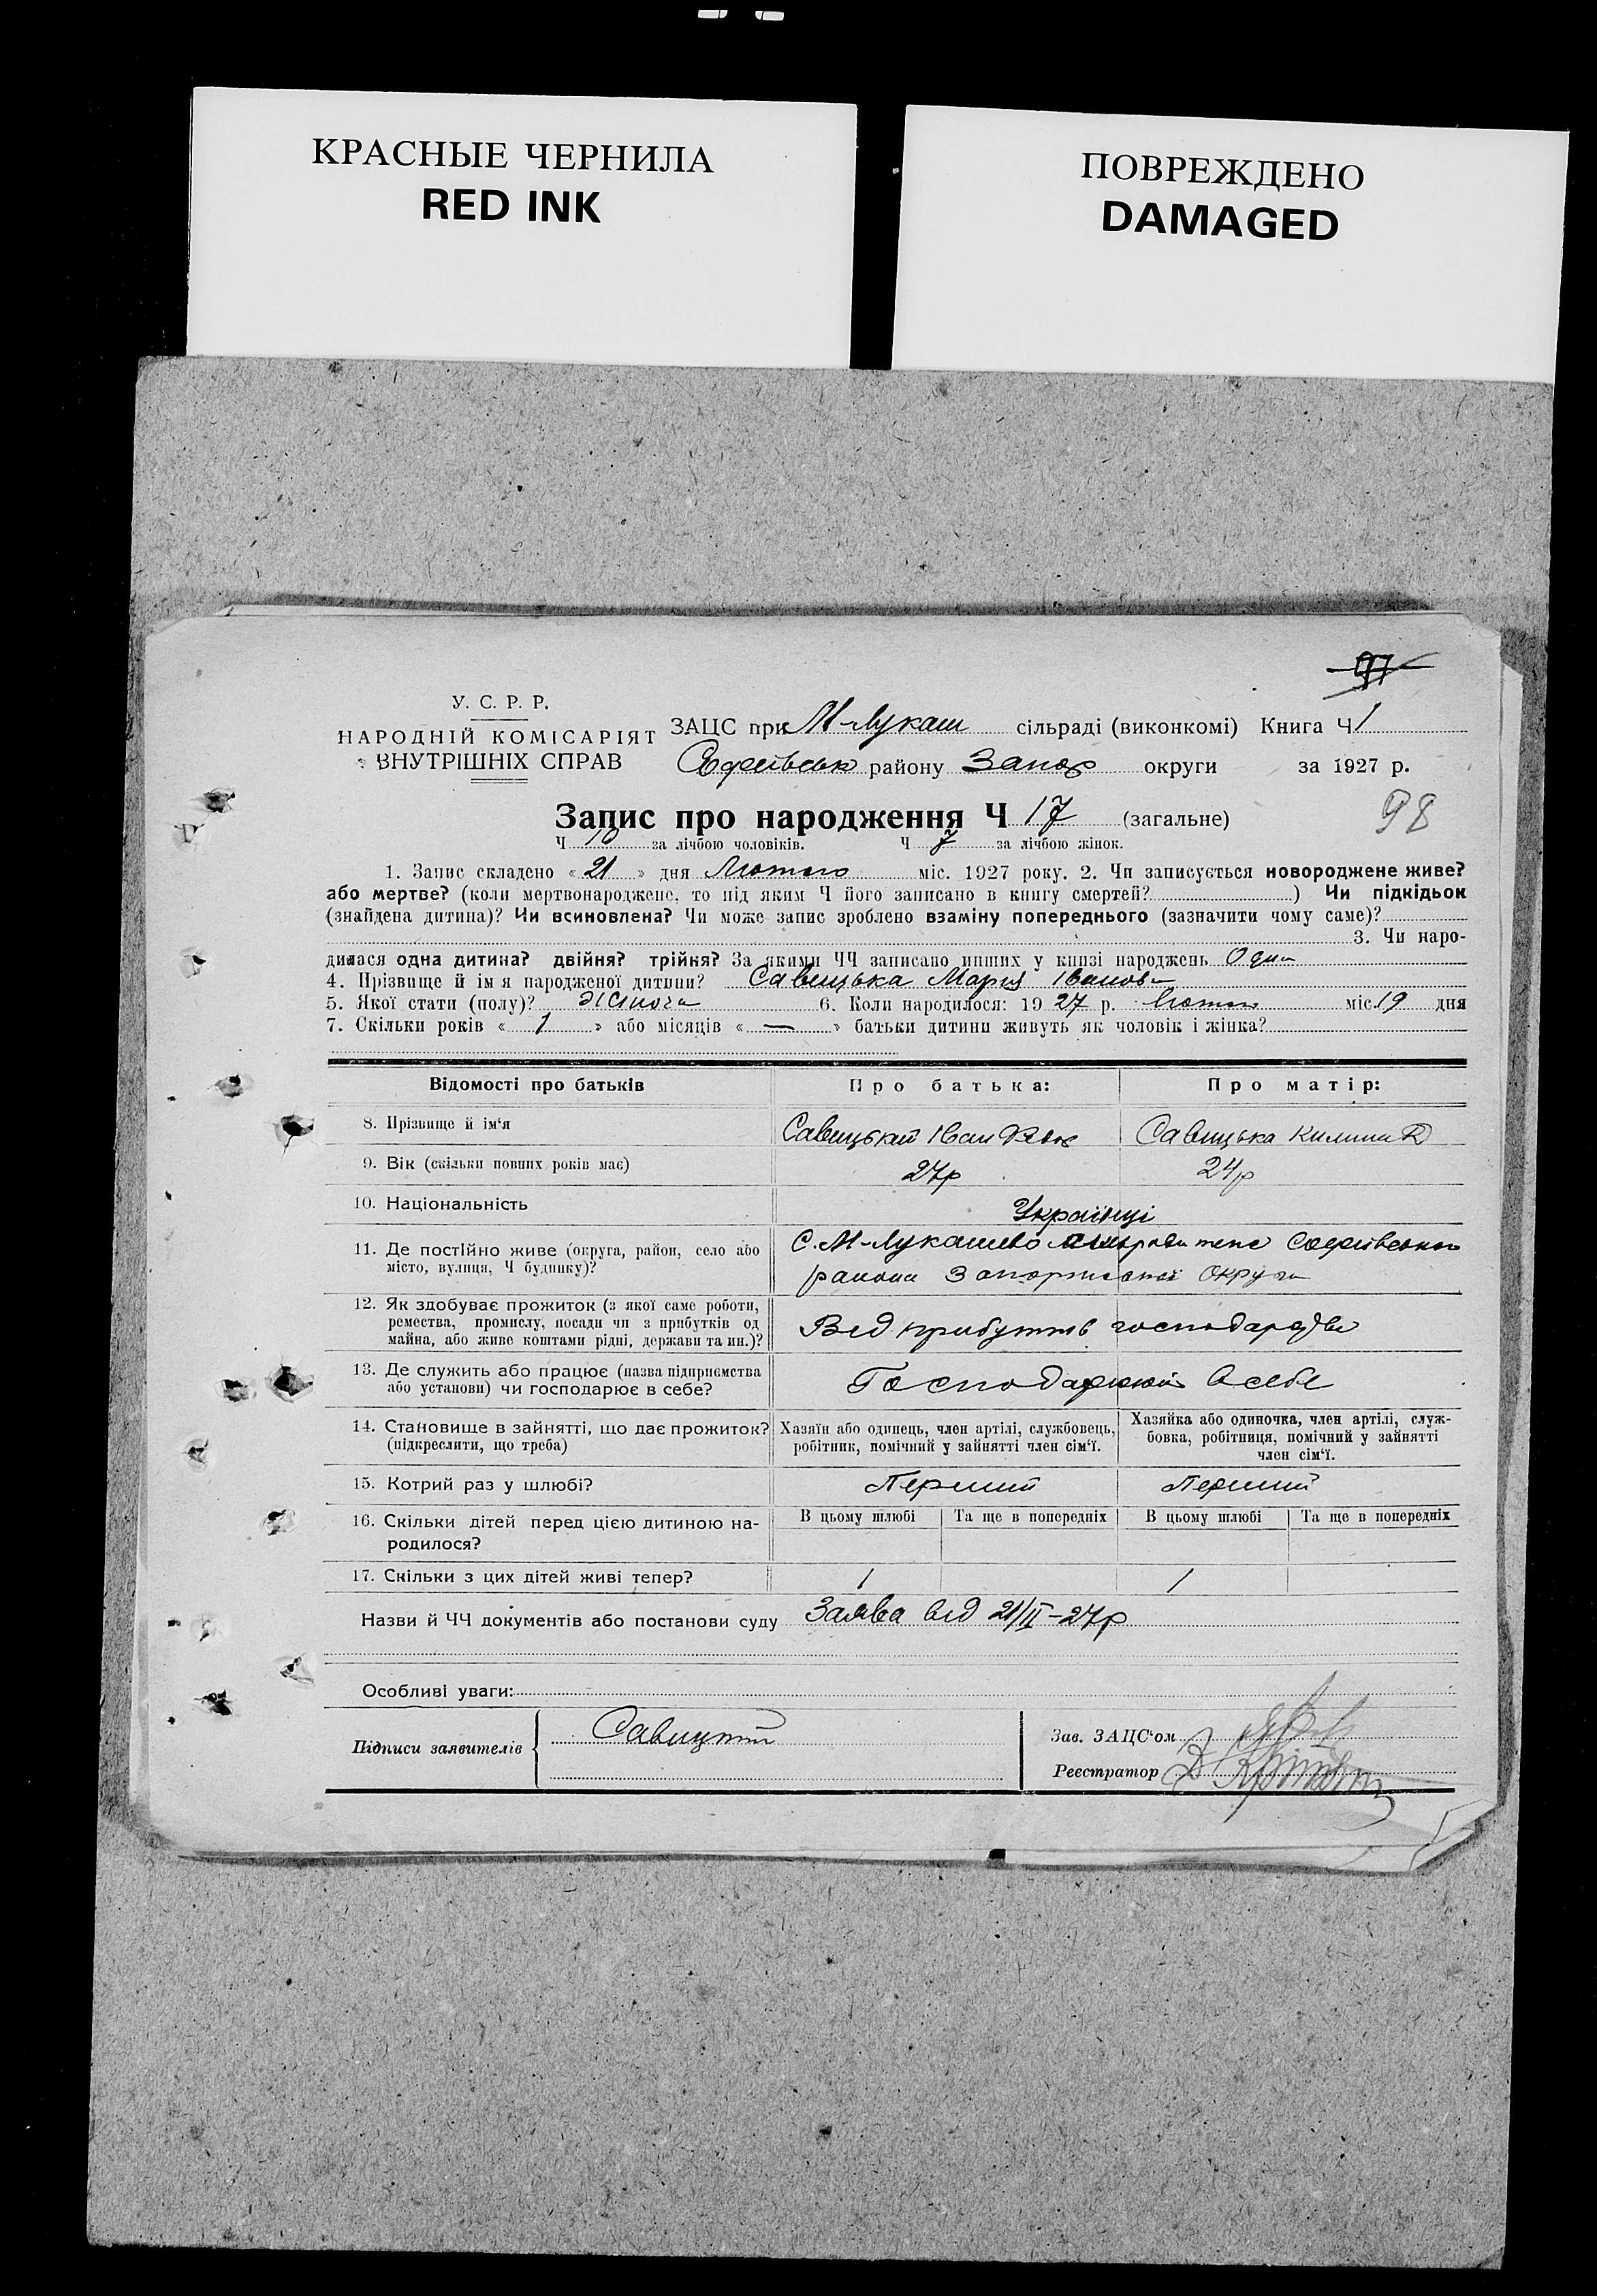 КРАСНЫЕ ЧЕРНИЛА
RED INK
ПОВРЕЖДЕНО
DAMAGED
97
У. С. Р. Р.
НАРОДНІЙ КОМІСАРІЯТ
ВНУТРІШНІХ СПРАВ
ЗАЦС при М-Лукаш сільраді (виконкомі) Книга Ч 1
Софеївськ району Запор округи за 1927 р.
Запис про народження Ч 17 (загальне)
98
Ч 10 за лічбою чоловіків. Ч 7 за лічбою жінок.
1. Запис складено « 21 » дня Лютого міс. 1927 року. 2. Чи записується новороджене живе?
або мертве? (коли мертвонароджене, то під яким Ч його записано в книгу смертей? ) Чи підкідьок
(знайдена дитина)? Чи всиновлена? Чи може запис зроблено взаміну попереднього (зазначити чому саме)?
3. Чи наро-
дилася одна дитина? двійня? трійня? За якими ЧЧ записано инших у книзі народжень Одна
4. Прізвище й ім'я народженої дитини? Савицька Мария Іванова
5. Якої стати (полу)? Жіноча 6. Коли народилося: 19 27 р. Лютого міс. 19 дня
7. Скільки років « 1 » або місяців « — » батьки дитини живуть як чоловік і жінка?
Відомості про батьків Про батька: Про матір:
8. Прізвище й ім'я Савицький Іван Савицька Килина
9. Вік (скільки повних років має) 27р 24р
10. Національність Українці
11. Де постійно живе (округа, район, село або
місто, вулиця, Ч будинку)?
С. М-Лукашево Софеївського
района Запорізької округи
12. Як здобуває прожиток (з якої саме роботи,
ремества, промислу, посади чи з прибутків од
майна, або живе коштами рідні, держави та ин.)?
Від прибутків господарства
13. Де служить або працює (назва підприємства
або установи) чи господарює в себе?
Господарюють в себе
14. Становище в зайнятті, що дає прожиток?
(підкреслити, що треба)
Хазяїн або одинець, член артілі, службовець,
робітник, помічний у зайнятті член сім'ї.
Хазяйка або одиночка, член артілі, служ-
бовка, робітниця, помічний у зайнятті
член сім'ї.
15. Котрий раз у шлюбі? Перший Перший
16. Скільки дітей перед цією дитиною на-
родилося?
В цьому шлюбі Та ще в попередніх В цьому шлюбі Та ще в попередніх
17. Скільки з цих дітей живі тепер? 1 1
Назви й ЧЧ документів або постанови суду Заява від 21/II-27р
Особливі уваги:
Підписи заявителів Савицький
Зав. ЗАЦС'ом
Реєстратор